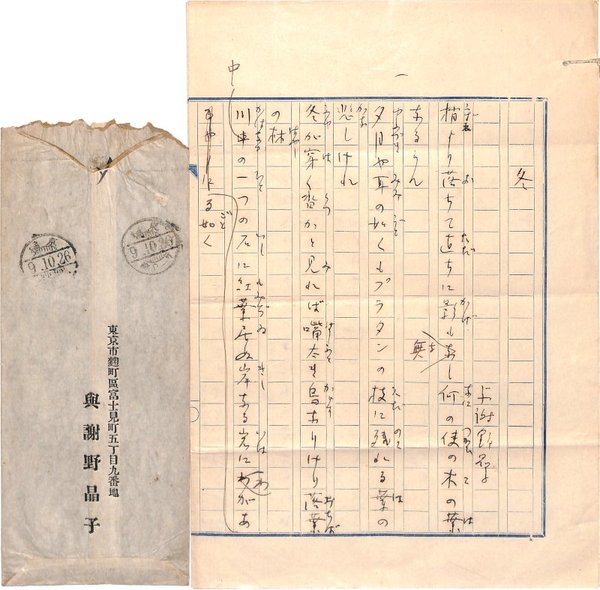 一
冬
与謝野晶子
梢より落ちて直ちに影も無し何の使の木の葉
なるらん
夕月や耳の如くもプラタンの枝に残れる葉の
悲しけれ
冬が穿く沓かと見れば嘴太き烏ありけり落葉
の林
の一つの石に紅葉居ぬ岸なる岩にわがあ
る如く
9.10.26
9.10.26
東京市麹町區富士見町五丁目九番地
與謝野晶子